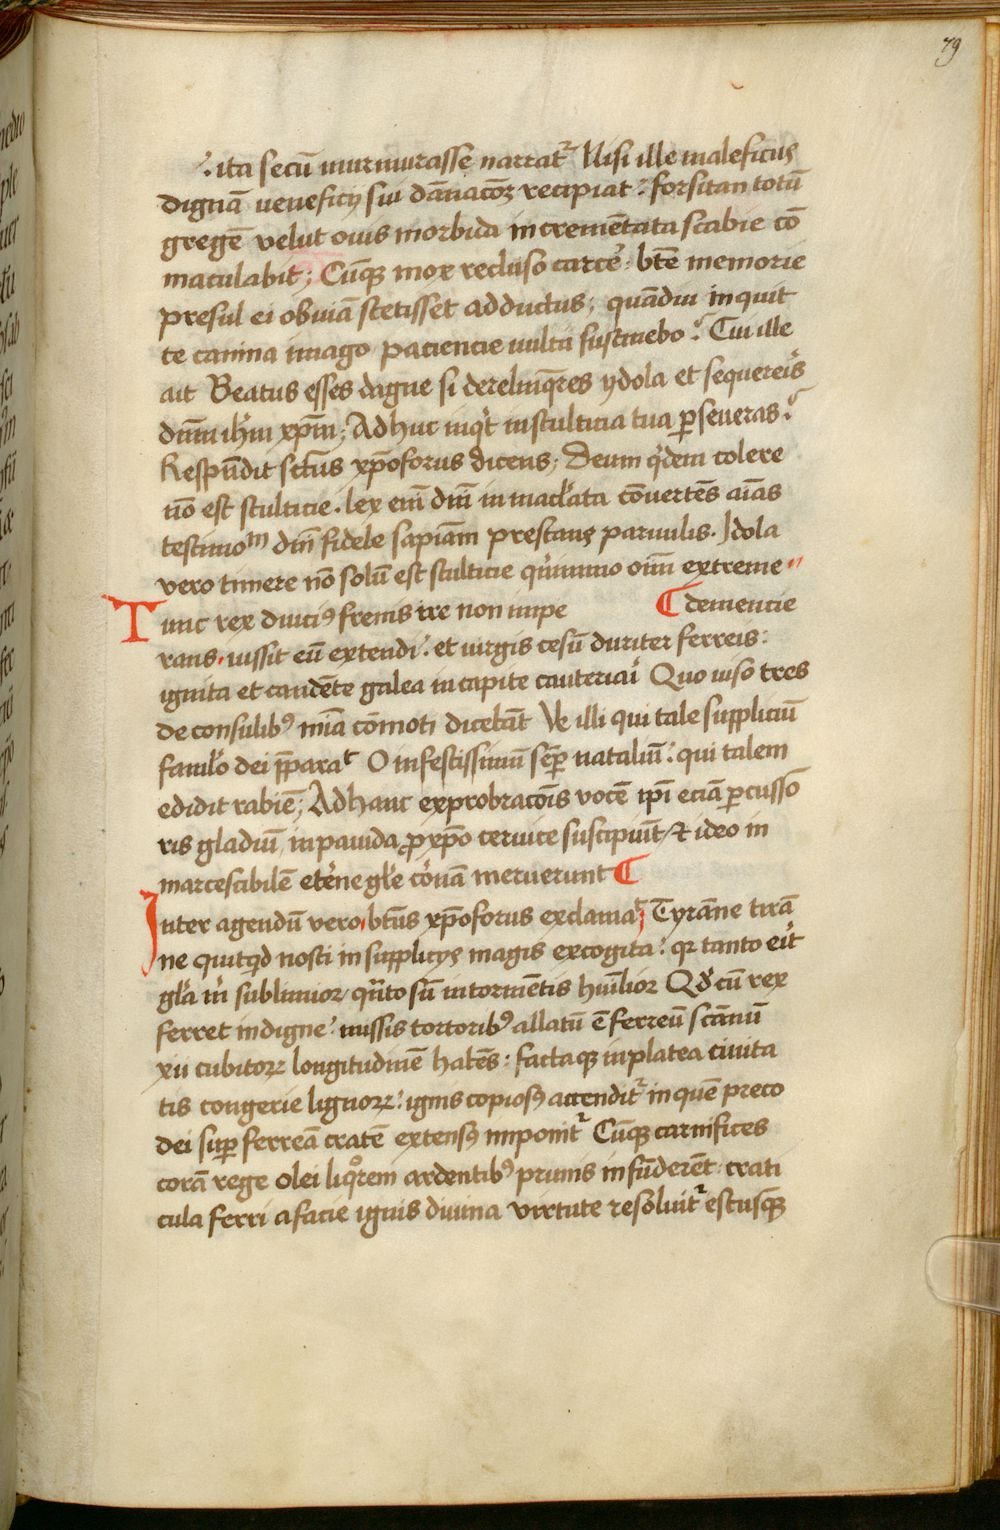 79
ita secū murmurasse narratr Nisi ille maleficus
dignā veneficij sui dānacōꝫ recipiat : forsitan totū
gregē velut ouis morbida incremētata scabie cō
maculabit ; Cūqꝫ mox recluso carce᷑ : btē memorie
presul ei obuiā stetisset adductus ; quādiu inquit
te canina imago paciencie multū sustinebo : Cui ille
ait Beatus esses dagne si derelinq̄res ydola et sequereis̾
dnm̄ ih̄m xp̄m ; Adhuc inq̾t in stulticia tua ꝑseueras :
Respūdit sctūs xp̄oforus dicens ; Deum q̾dem colere
nō est stulticie . lex em̄ dn̄i in mac̾lata cōuertēs aīas
testimom dn̄i fidele sapīam prestans paruulis . Idola
vero timere nō solū est stulticie qͥnimmo om̄i extreme
Tunc rex diuciꝰ fremis ire non impe ¶ demencie
rans iussit eū extendi : et virgis cesū duriter ferreis :
ignita et candēte galea in capite cauteriai᷑ Quo viso tres
de consulibꝰ mīa cōmoti dicebāt Ve illi qui tale suppliciū
famlo᷑ dei p̄parat O infestissimū sēꝑ nataliū : qui talem
edidit rabiē ; Ad hanc exprobracōis vocē ip̄i eciā ꝑcusso
ris gladiū inpauida ꝓ xp̄o ceruice suscipiūt / et ideo in
marcescibilē et᷑ne gl᷑e co᷑nā meruerunt ¶
Inter agendū vero btūs xp̄oforus exclamat Tyrāne tirā
ne quitqͥd nosti in supplicijs magis excogita : qꝛ tanto ei᷑t
gl᷑a m̾ sublimior qn̄to sū in tormētis hūilior Qd᷑ cū rex
ferret indigne : missis tortoribꝰ allatū ē ferreū scānū
xii cubitoꝝ longitudinē habēs : factaqꝫ in platea ciuita
tis congerie lignoꝝ : ignis copiosꝰ accenditr in quē preco
dei suꝑ ferreā cratē extensꝰ imponitr Cūqꝫ carnifices
corā rege olei liqͦrem ardentibꝰ prunis infūderēt : crati
cula ferri a facie ignis diuina virtute resoluitr estusqꝫ